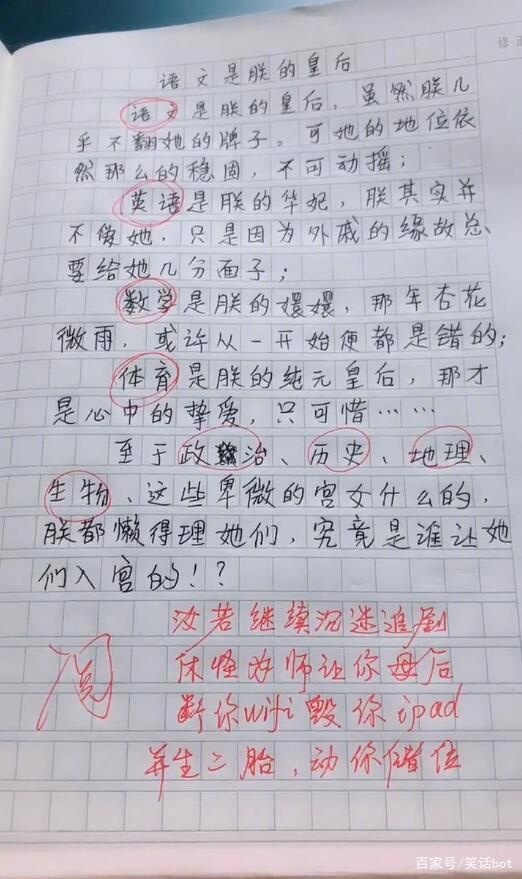 修正
语文是朕的皇后
语文是朕的皇后，虽然朕几
乎不翻她的牌子。可她的地位依
然那么的稳固，不可动摇；
英语是朕的华妃，朕其实并
不爱她，只是因为外戚的缘故总
要给她几分面子；
数学是朕的嬛嬛，那年杏花
微雨，或许从一开始便都是错的；
体育是朕的纯元皇后，那才
是心中的挚爱，只可惜……
至于政治、历史、地理、
生物、这些卑微的宫女什么的，
朕都懒得理她们，究竟是谁让她
们入宫的！？
阅
汝若继续沉迷追剧
休怪为师让你母后
断你wifi毁你ipad
并生二胎，动你储位
百家号/笑话bot